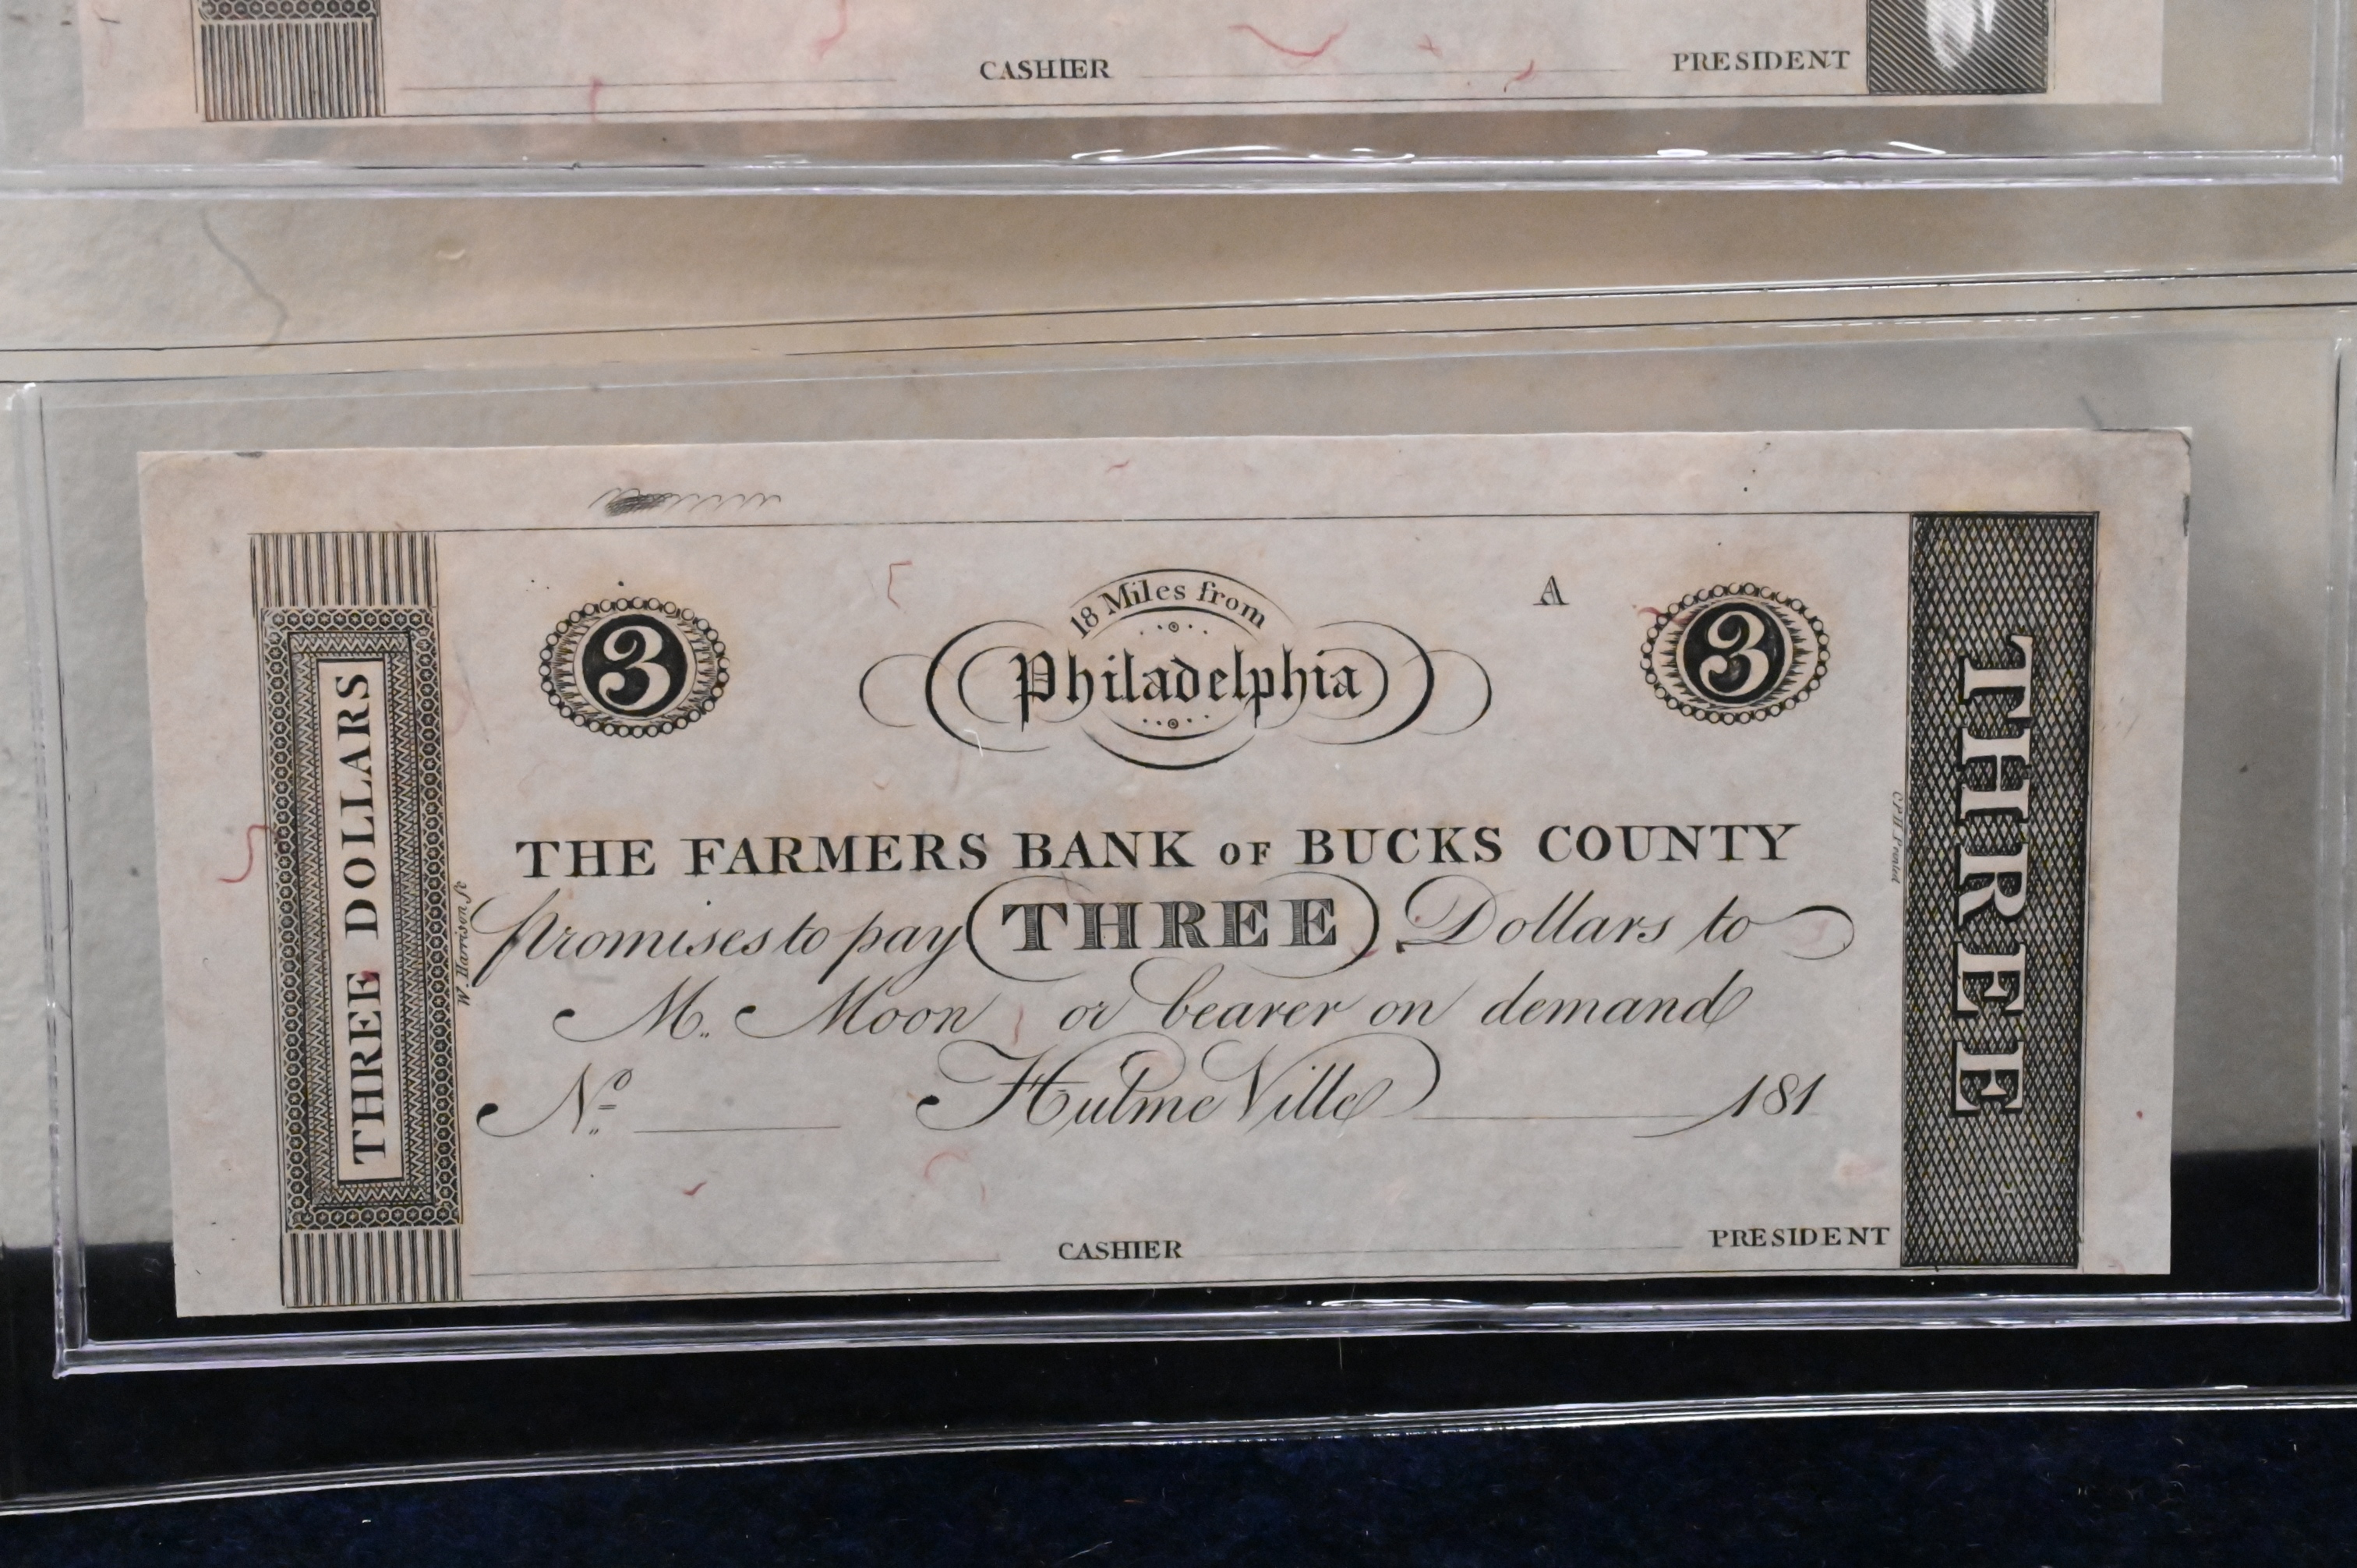 CASHIER PRESIDENT
18 Miles from
Philadelphia
A
3 3
THREE DOLLARS
THREE
THE FARMERS BANK OF BUCKS COUNTY
promises to pay THREE Dollars to
M. Moon or bearer on demand
No. Hulme Ville 181
CASHIER PRESIDENT
W. Harrison sc